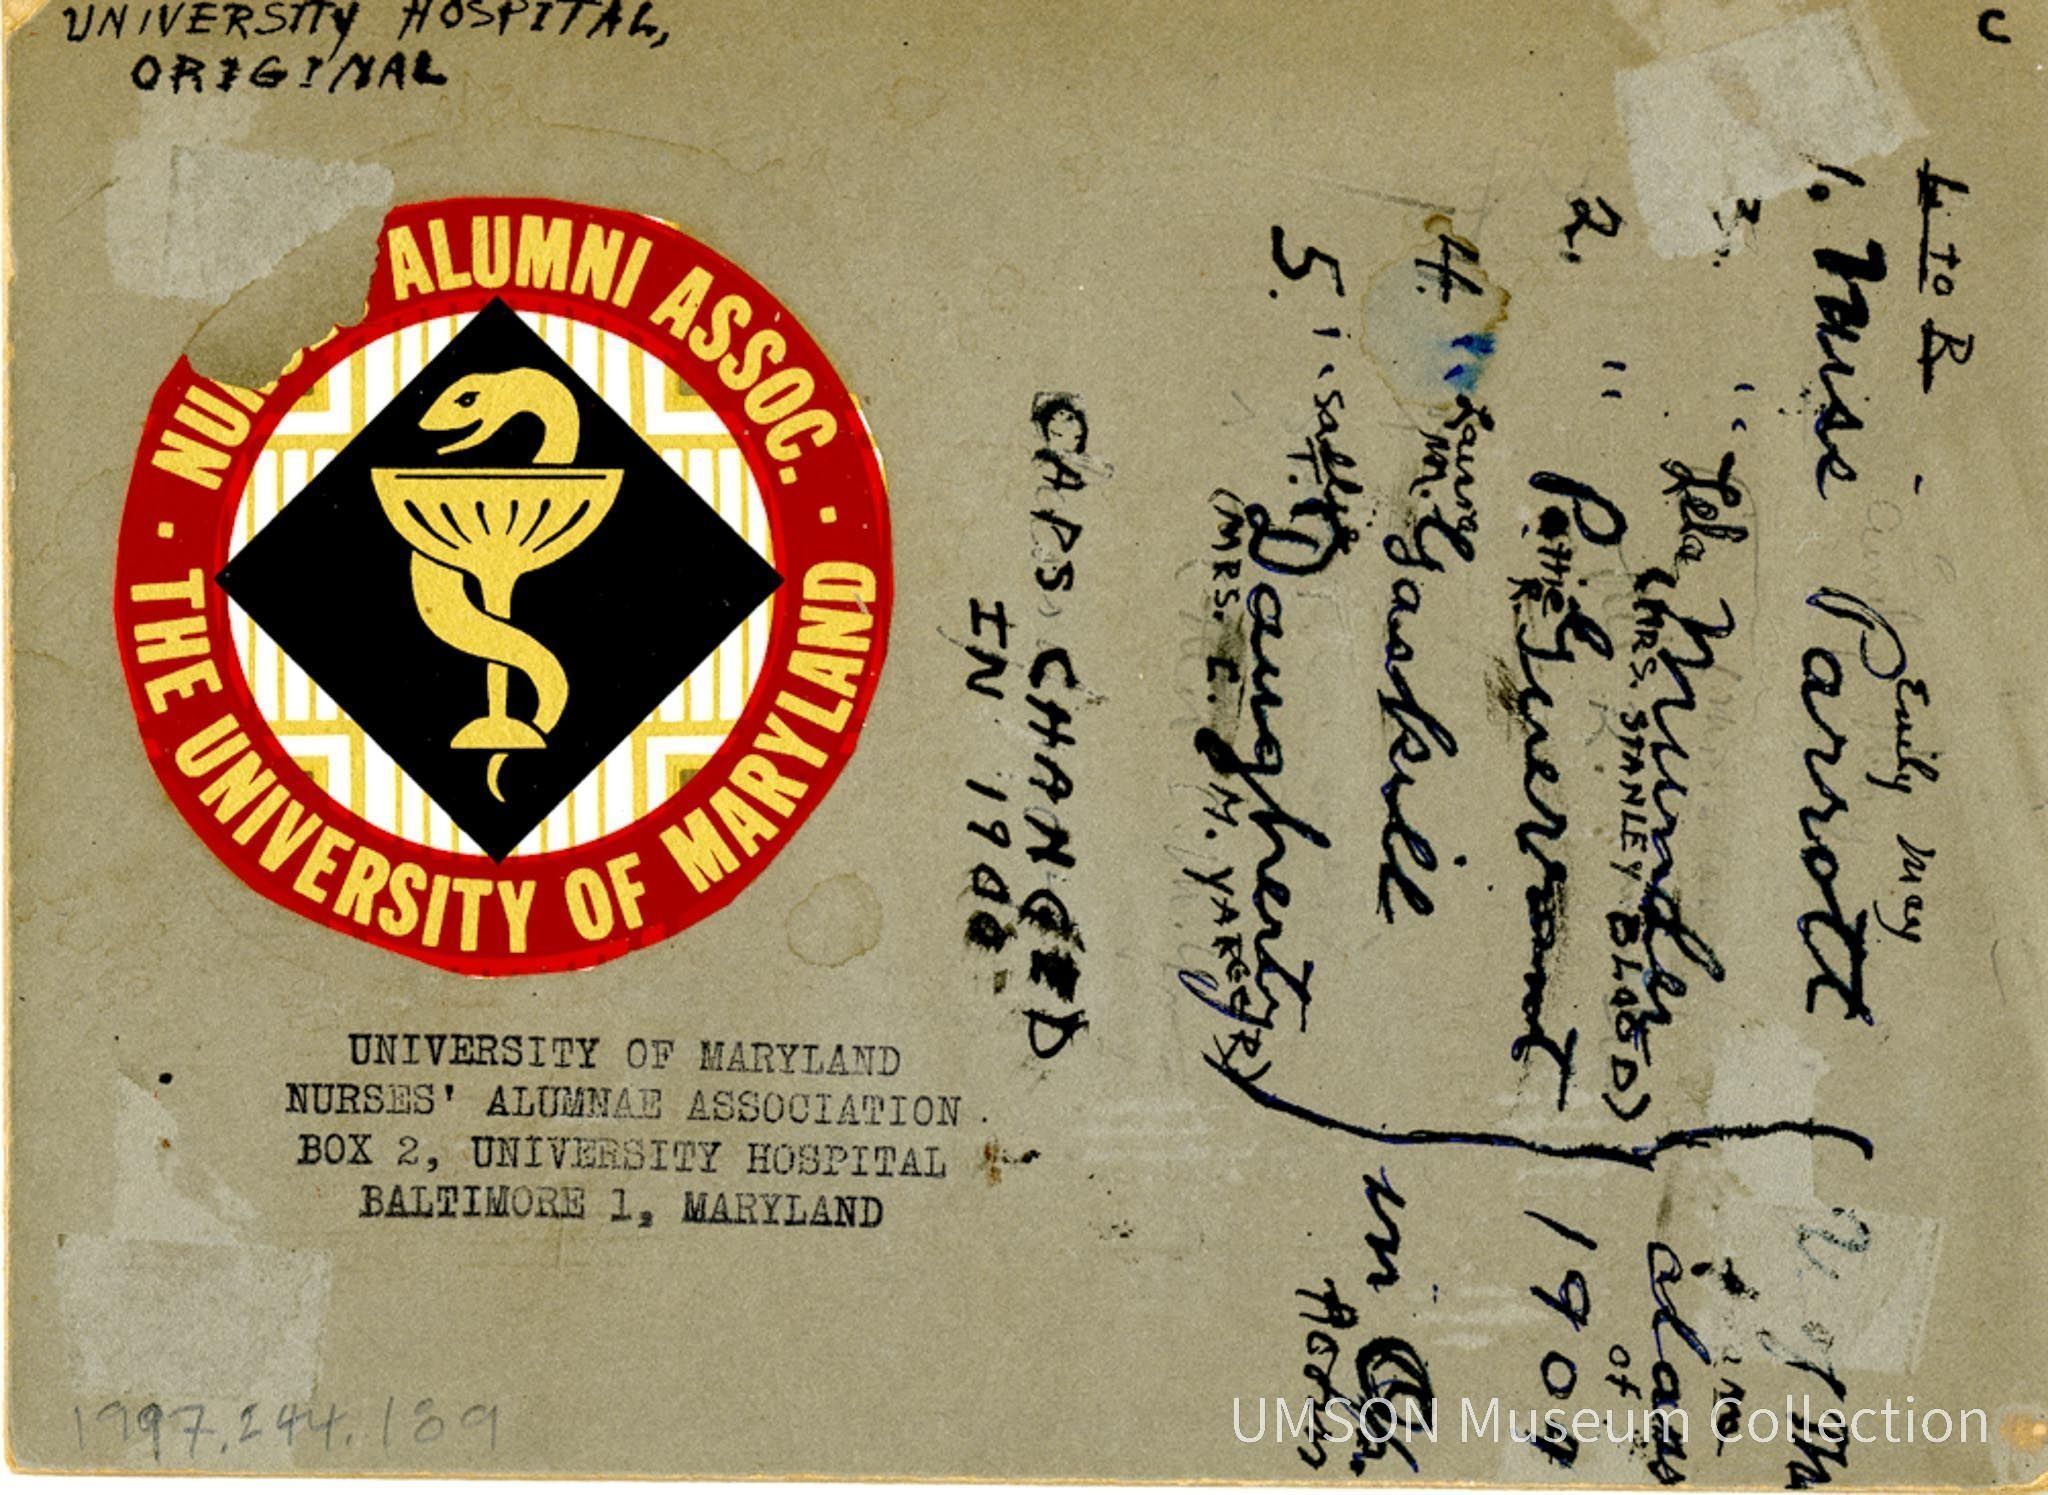 UNIVERSITY HOSPITAL,
ORIGINAL
C
ALUMNI ASSOC.
THE UNIVERSITY OF MARYLAND
UNIVERSITY OF MARYLAND
NURSES' ALUMNAE ASSOCIATION
BOX 2, UNIVERSITY HOSPITAL
BALTIMORE 1, MARYLAND
1997.244.189
L to R
Emily May
1. Miss Parrott
3. " Lela Mundler
(MRS. STANLEY BLOOD)
2. " Pattie
R. Guerrant
4. " Laura
M. Gaskill
5. " Sally
T. Daugherty
(MRS. E. M. YARGER)
U of M
Class
of
1901
in
CAPS CHANGED
IN 1900
UMSON Museum Collection